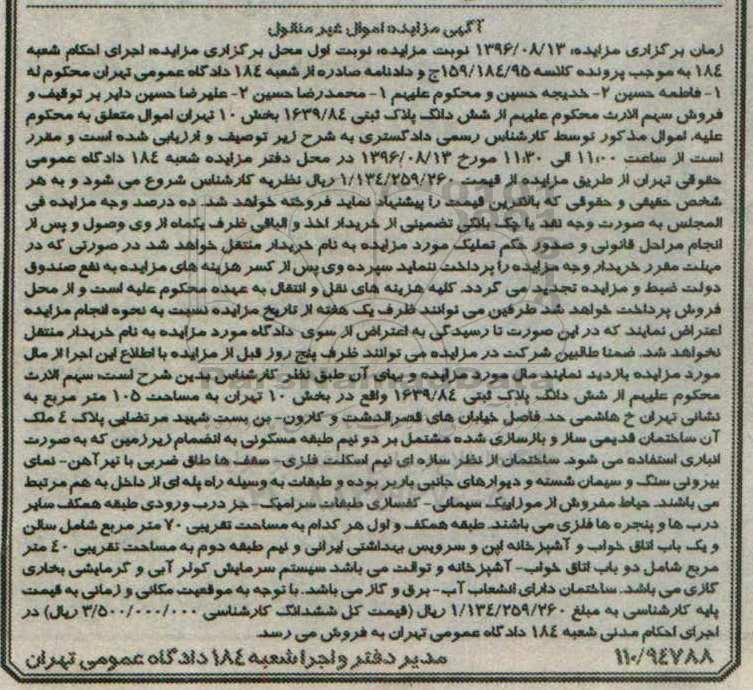 آگهی مزایده اموال غیر منقول
زمان برگزاری مزایده: ۱۳۹۶/۰۸/۱۳ نوبت مزایده: نوبت اول محل برگزاری مزایده: اجرای احکام شعبه
۱۸٤ به موجب پرونده کلاسه ۱۵۹/۱۸٤/۹۵ج و دادنامه صادره از شعبه ۱۸٤ دادگاه عمومی تهران محکوم له
۱- فاطمه حسین ۲- خدیجه حسین و محکوم علیهم ۱- محمدرضا حسین ۲- علیرضا حسین دایر بر توقیف و
فروش سهم الارث محکوم علیهم از شش دانگ پلاک ثبتی ۱۶۳۹/۸٤ بخش ۱۰ تهران اموال متعلق به محکوم
علیه. اموال مذکور توسط کارشناس رسمی دادگستری به شرح زیر توصیف و ارزیابی شده است و مقرر
است از ساعت ۱۱:۰۰ الی ۱۱:۳۰ مورخ ۱۳۹۶/۰۸/۱۳ در محل دفتر مزایده شعبه ۱۸٤ دادگاه عمومی
حقوقی تهران از طریق مزایده از قیمت ۱/۱۳٤/۲۵۹/۲۶۰ ریال نظریه کارشناس شروع می شود و به هر
شخص حقیقی و حقوقی که بالاترین قیمت را پیشنهاد نماید فروخته خواهد شد. ده درصد وجه مزایده فی
المجلس به صورت وجه نقد یا چک بانکی تضمینی از خریدار اخذ و الباقی ظرف یکماه از وی وصول و پس از
انجام مراحل قانونی و صدور حکم تملیک مورد مزایده به نام خریدار منتقل خواهد شد در صورتی که در
مهلت مقرر خریدار وجه مزایده را پرداخت ننماید سپرده وی پس از کسر هزینه های مزایده به نفع صندوق
دولت ضبط و مزایده تجدید می گردد. کلیه هزینه های نقل و انتقال به عهده محکوم علیه است و از محل
فروش پرداخت خواهد شد طرفین می توانند ظرف یک هفته از تاریخ مزایده نسبت به نحوه انجام مزایده
اعتراض نمایند که در این صورت تا رسیدگی به اعتراض از سوی دادگاه مورد مزایده به نام خریدار منتقل
نخواهد شد. ضمنا طالبین شرکت در مزایده می توانند ظرف پنج روز قبل از مزایده با اطلاع این اجرا از مال
مورد مزایده بازدید نمایند مال مورد مزایده و بهای آن طبق نظر کارشناس بدین شرح است: سهم الارث
محکوم علیهم از شش دانگ پلاک ثبتی ۱۶۳۹/۸٤ واقع در بخش ۱۰ تهران به مساحت ۱۰۵ متر مربع به
نشانی تهران خ هاشمی حد فاصل خیابان های قصرالدشت و کارون- بن بست شهید مرتضایی پلاک ٤ ملک
آن ساختمان قدیمی ساز و بازسازی شده مشتمل بر دو نیم طبقه مسکونی به انضمام زیرزمین که به صورت
انباری استفاده می شود. ساختمان از نظر سازه ای نیم اسکلت فلزی- سقف ها طاق ضربی با تیرآهن- نمای
بیرونی سنگ و سیمان شسته و دیوارهای جانبی باربر بوده و طبقات به وسیله راه پله ای از داخل به هم مرتبط
می باشند. حیاط مفروش از موزاییک سیمانی- کفسازی طبقات سرامیک- جز درب ورودی طبقه همکف سایر
درب ها و پنجره ها فلزی می باشند. طبقه همکف و اول هر کدام به مساحت تقریبی ۷۰ متر مربع شامل سالن
و یک باب اتاق خواب و آشپزخانه اپن و سرویس بهداشتی ایرانی و نیم طبقه دوم به مساحت تقریبی ٤۰ متر
مربع شامل دو باب اتاق خواب- آشپزخانه و توالت می باشد سیستم سرمایش کولر آبی و گرمایشی بخاری
گازی می باشد. ساختمان دارای انشعاب آب- برق و گاز می باشد. با توجه به موقعیت مکانی و زمانی به قیمت
پایه کارشناسی به مبلغ ۱/۱۳٤/۲۵۹/۲۶۰ ریال (قیمت کل ششدانگ کارشناسی ۳/۵۰۰/۰۰۰/۰۰۰ ریال) در
اجرای احکام مدنی شعبه ۱۸٤ دادگاه عمومی تهران به فروش می رسد.
۱۱۰/۹٤۷۸۸ مدیر دفتر و اجرا شعبه ۱۸٤ دادگاه عمومی تهران